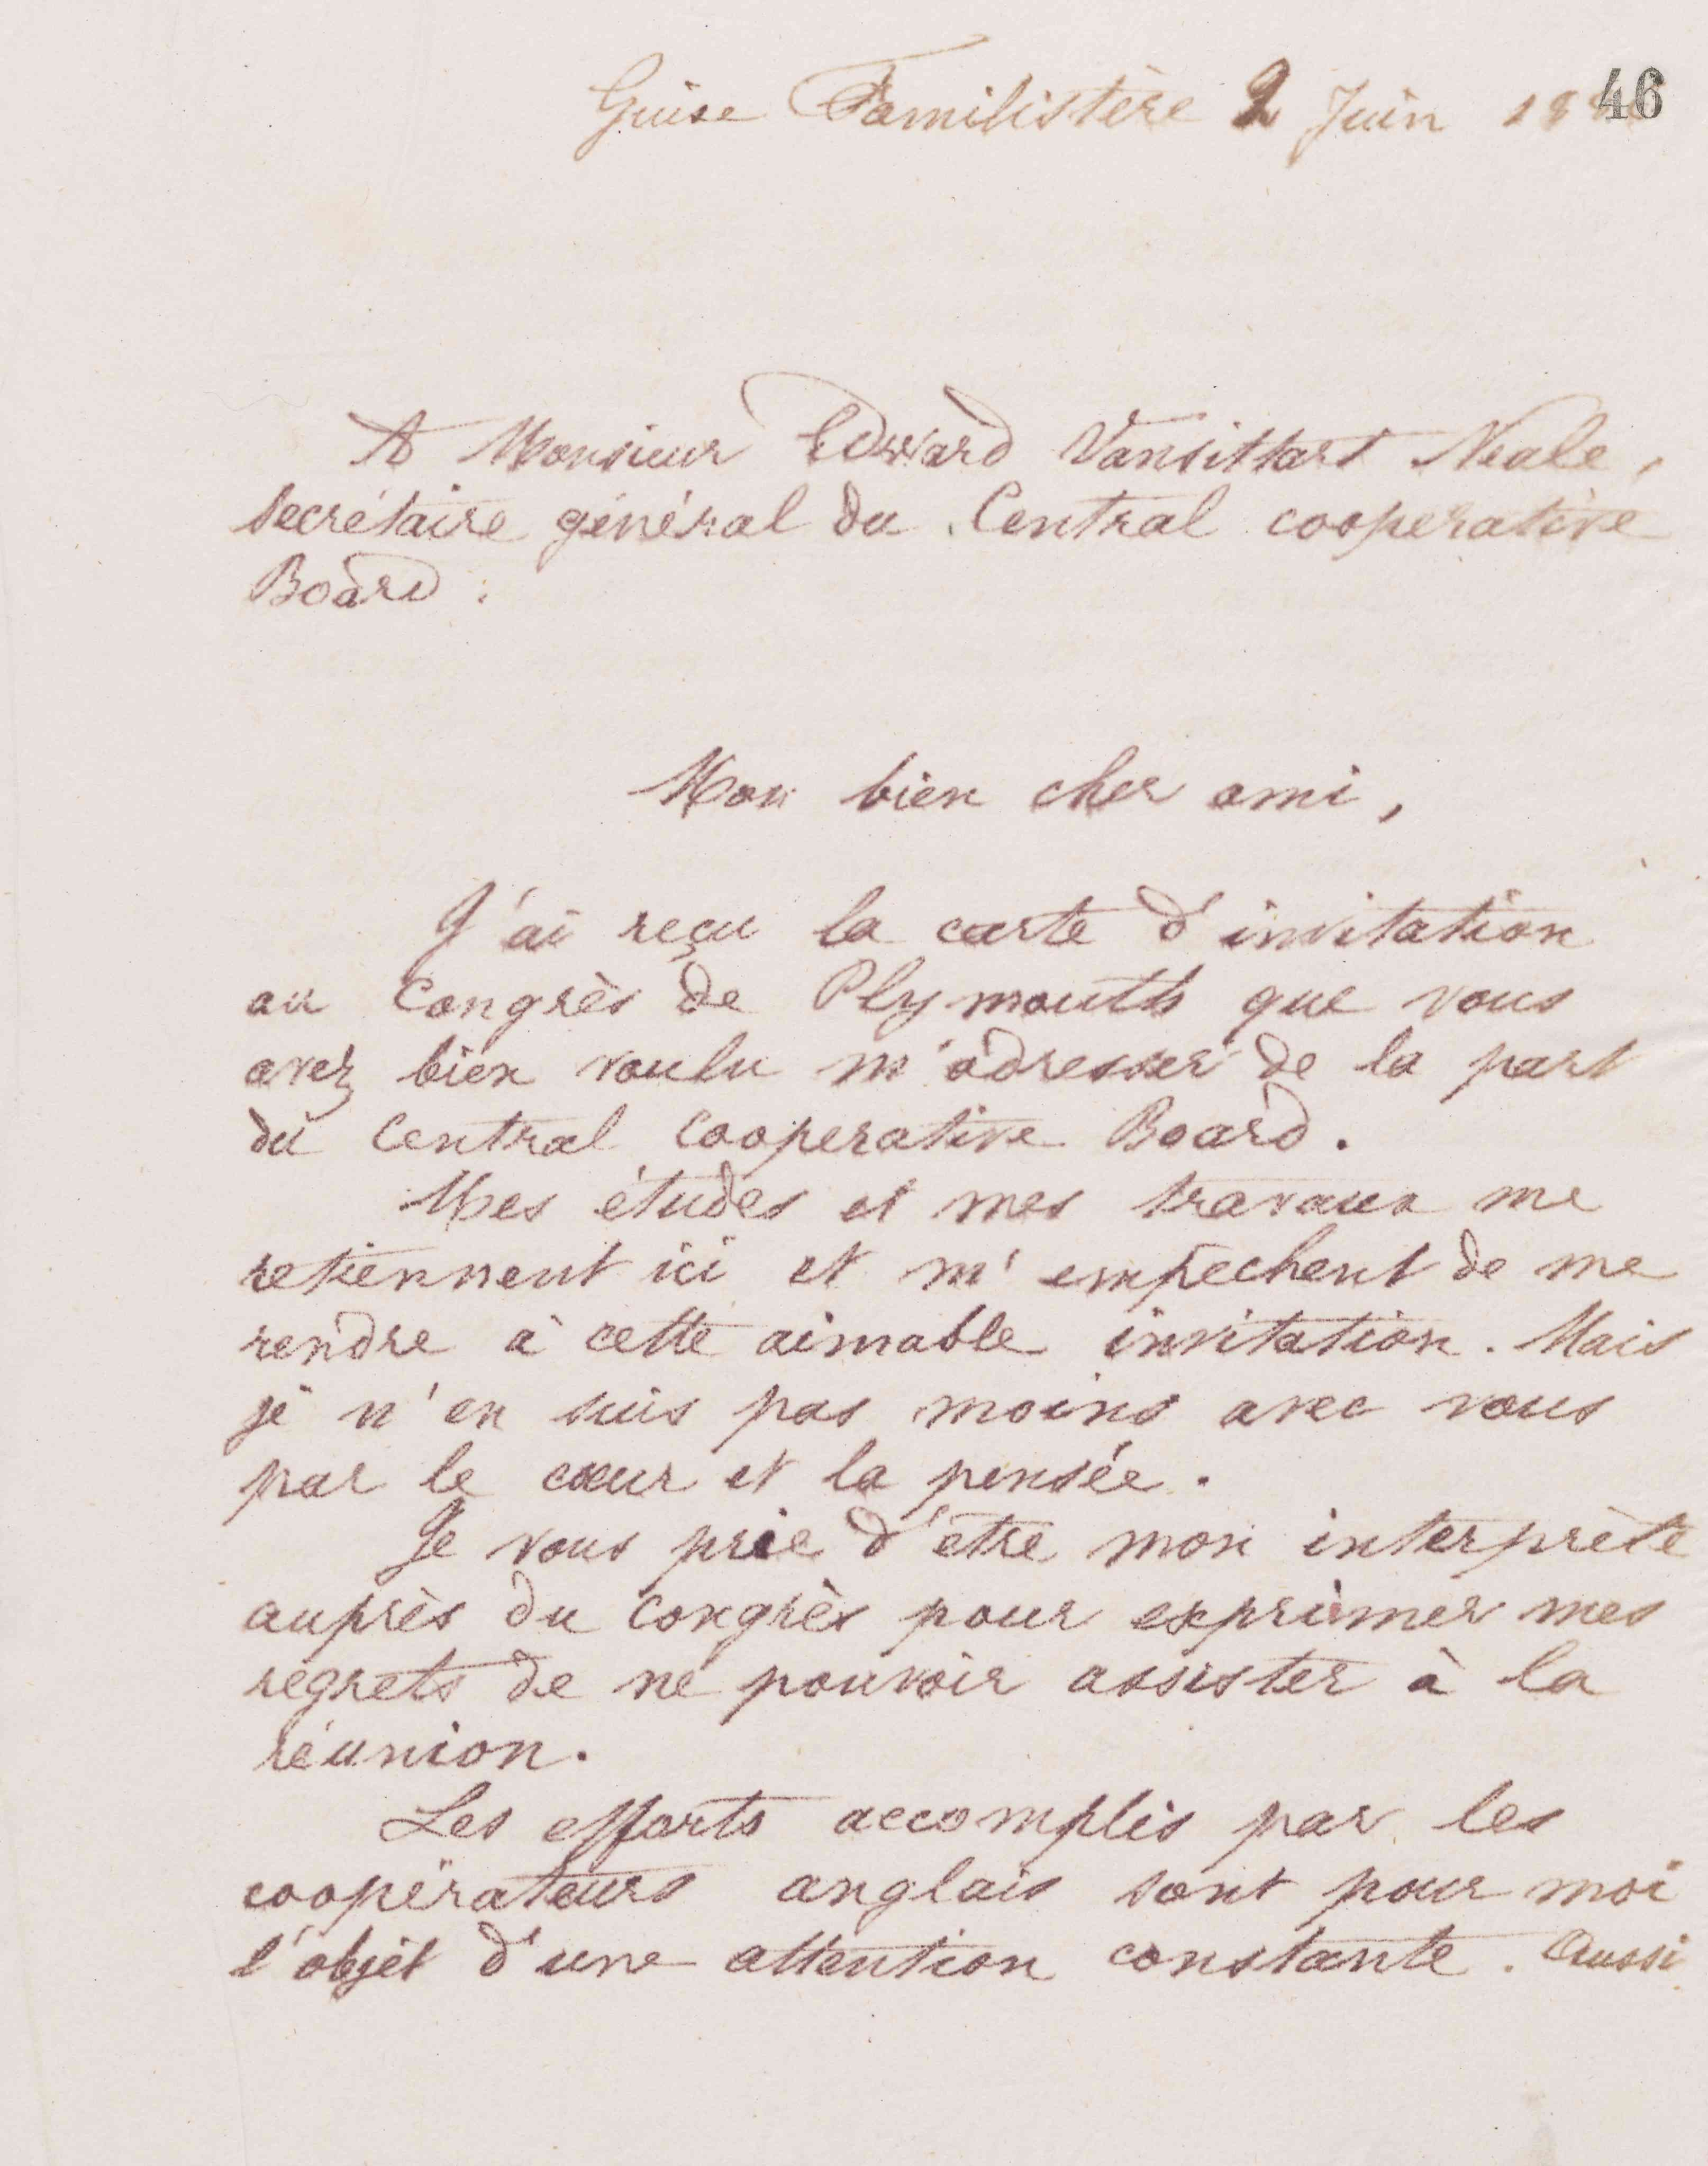 Guise Familistère 2 Juin 188
46
A Monsieur Edward Vansittart Neale,
secrétaire général du Central cooperative
Board.
Mon bien cher ami,
J'ai reçu la carte d'invitation
au Congrès de Plymouth que vous
avez bien voulu m'adresser de la part
du Central Cooperative Board.
Mes études et mes travaux me
retiennent ici et m'empêchent de me
rendre à cette aimable invitation. Mais
je n'en suis pas moins avec vous
par le cœur et la pensée.
Je vous prie d'être mon interprète
auprès du Congrès pour exprimer mes
regrets de ne pouvoir assister à la
réunion.
Les efforts accomplis par les
coopérateurs anglais sont pour moi
l'objet d'une attention constante. Aussi